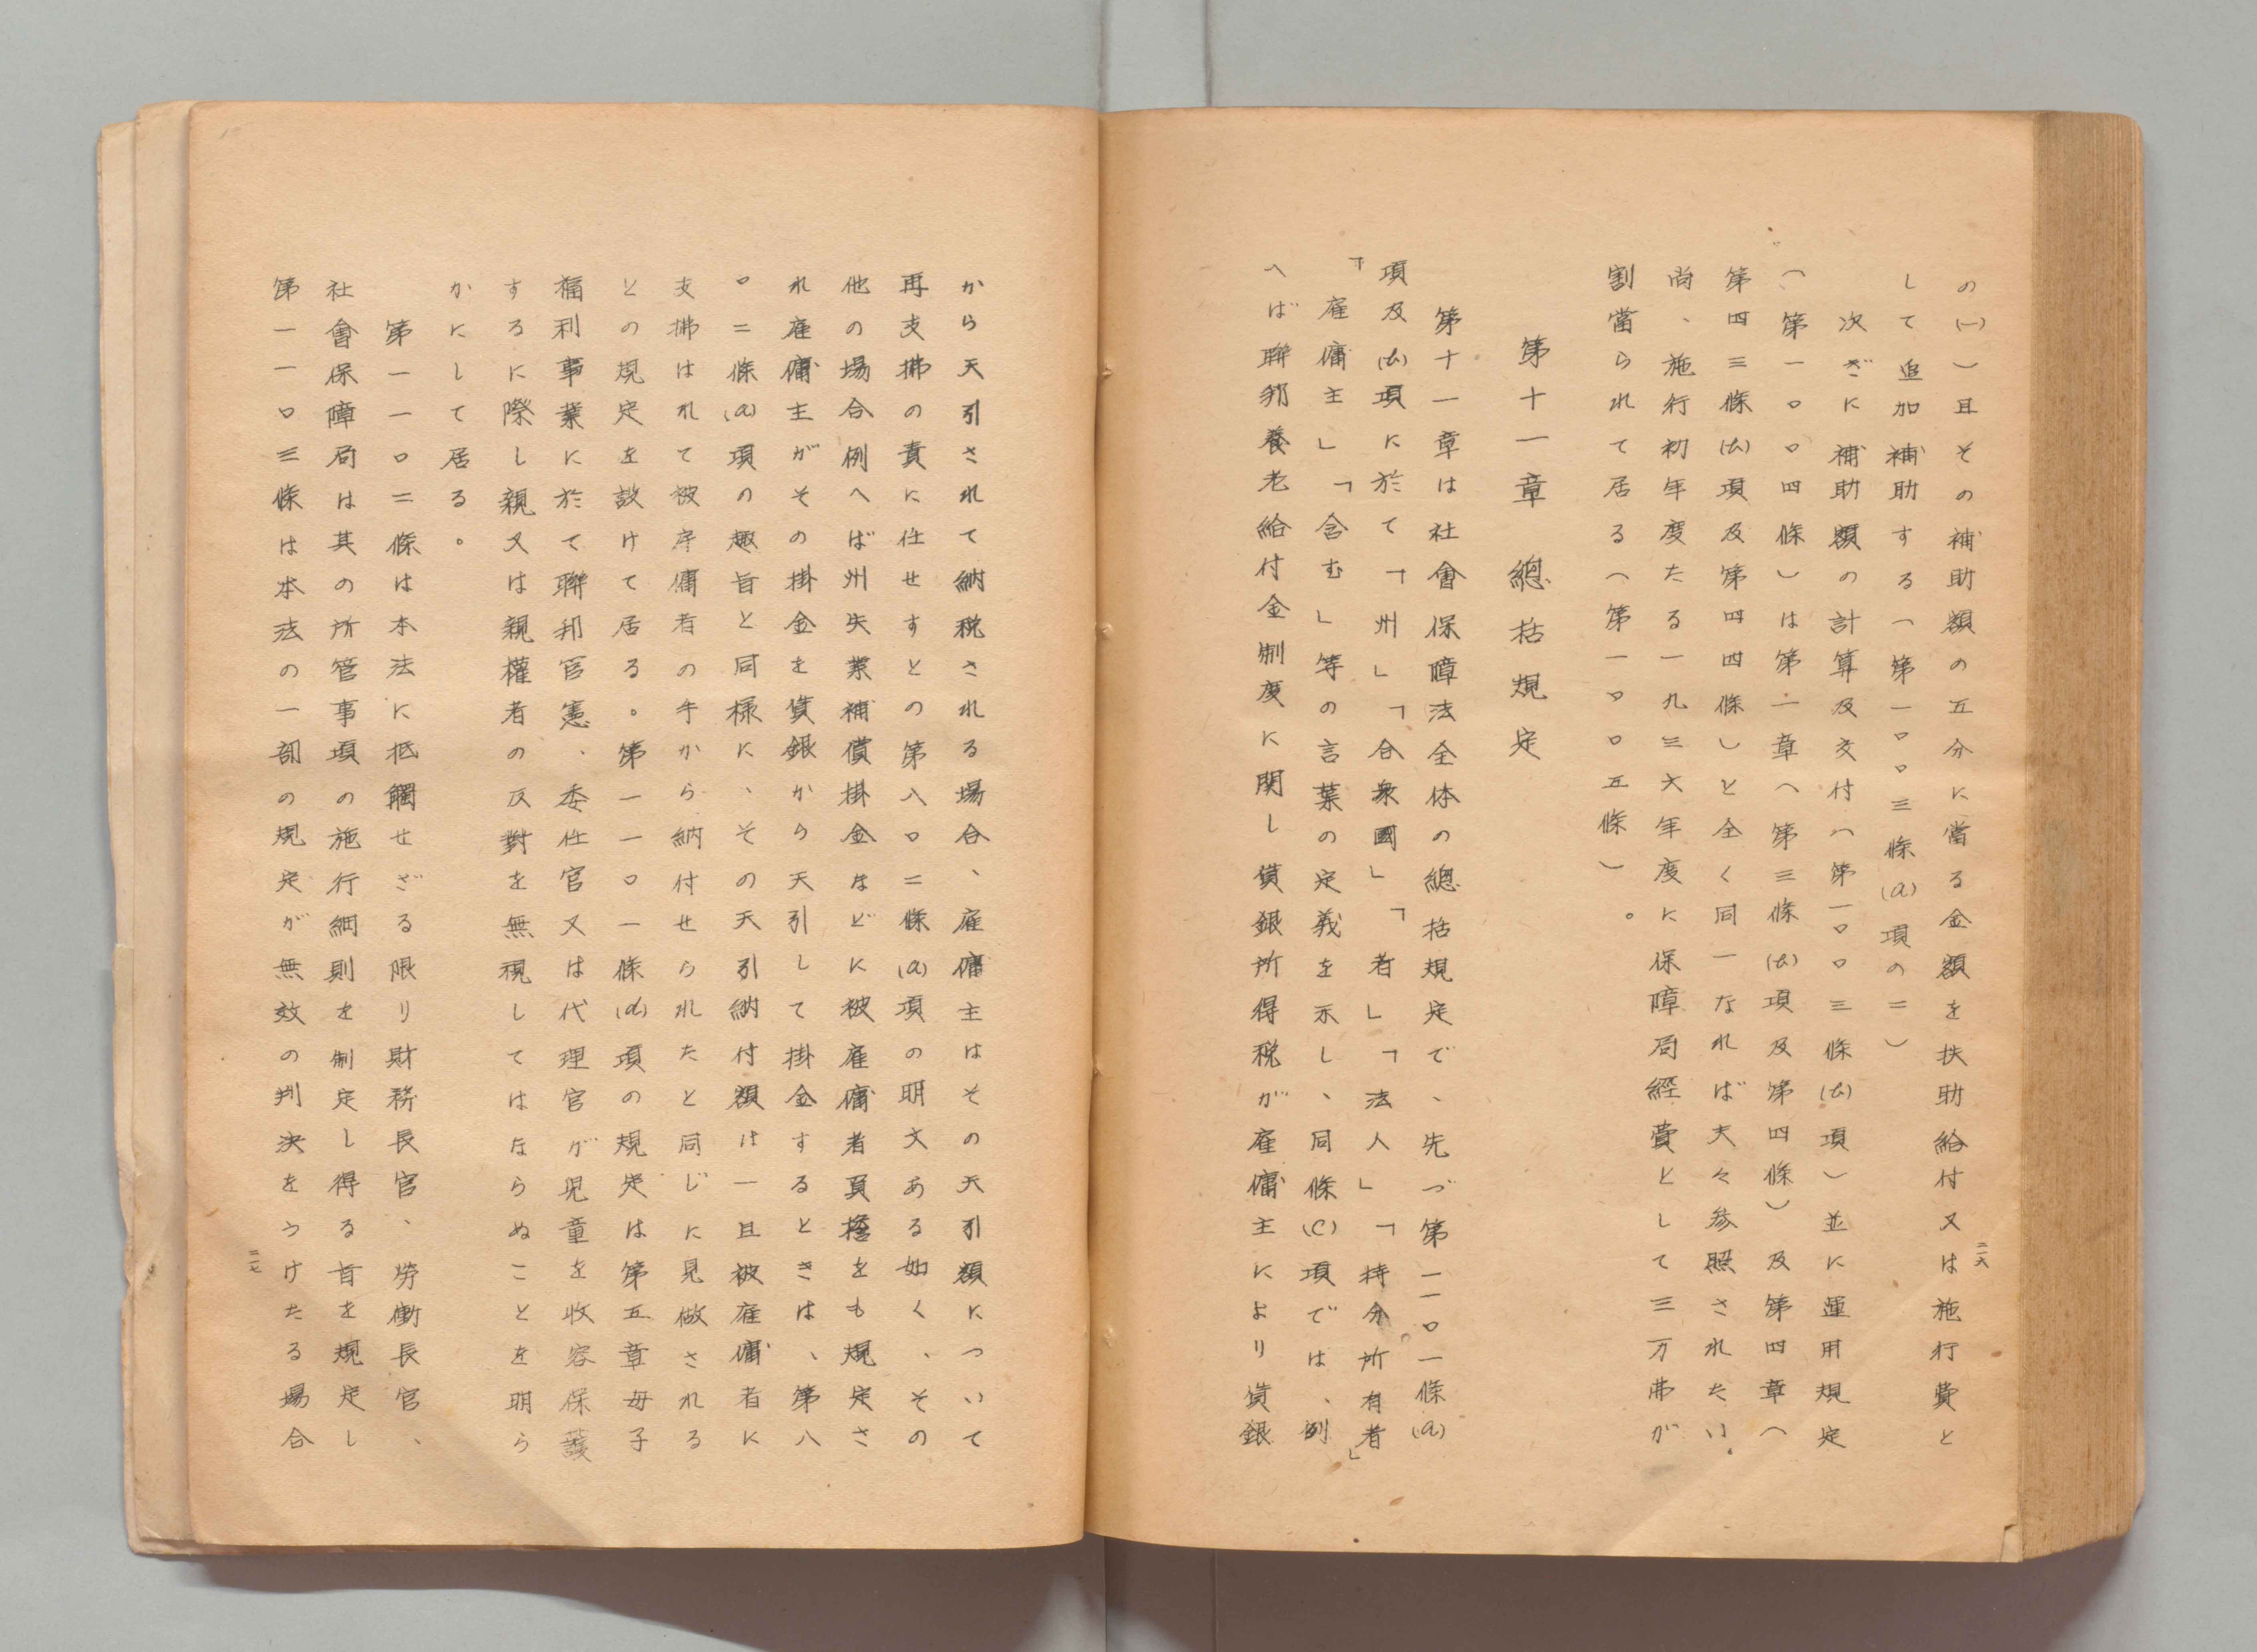 二六
の(一))且その補助額の五分に當る金額を扶助給付又は施行費と
して追加補助する(第一〇〇三條(a)項の二)
次ぎに補助額の計算及交付(第一〇〇三條(b)項)並に運用規定
(第一〇〇四條)は第一章(第三條(b)項及第四條)及第四章(
第四三條(b)項及第四四條)と全く同一なれば夫々參照されたい。
尚、施行初年度たる一九三六年度に保障局経費として三万弗が
割當られて居る(第一〇〇五條)。
第十一章 總括規定
第十一章は社會保障法全体の總括規定で、先づ第一一〇一條(a)
項及(b)項に於て「州」「合衆國」「者」「法人」「持分所有者」
「雇傭主」「含む」等の言葉の定義を示し、同條(C)項では、例
へば聯邦養老給付金制度に関し賃銀所得税が雇傭主により賃銀
から天引されて納税される場合、雇傭主はその天引額について
再支拂の責に任せすとの第八〇二條(a)項の明文ある如く、その
他の場合例へば州失業補償掛金などに被雇傭者負擔をも規定さ
れ雇傭主がその掛金を賃銀から天引して掛金するときは、第八
〇二條(a)項の趣旨と同様に、その天引納付額は一旦被雇傭者に
支拂はれて被雇傭者の手から納付せられたと同じに見做される
との規定を設けて居る。第一一〇一條(d)項の規定は第五章母子
福利事業に於て聯邦官憲、委任官又は代理官が児童を收容保護
するに際し親又は親權者の反對を無視してはならぬことを明ら
かにして居る。
第一一〇二條は本法に抵觸せざる限り財務長官、勞働長官、
社會保障局は其の所管事項の施行細則を制定し得る旨を規定し
第一一〇三條は本法の一部の規定が無效の判決をうけたる場合
二七